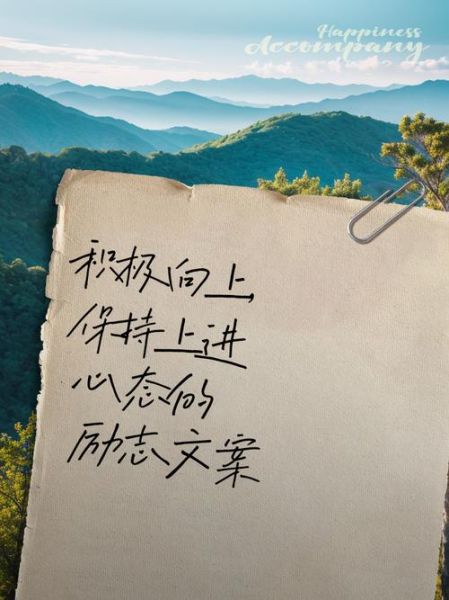 Happiness
Accompany
积极向上
保持上进
心态的
励志文案